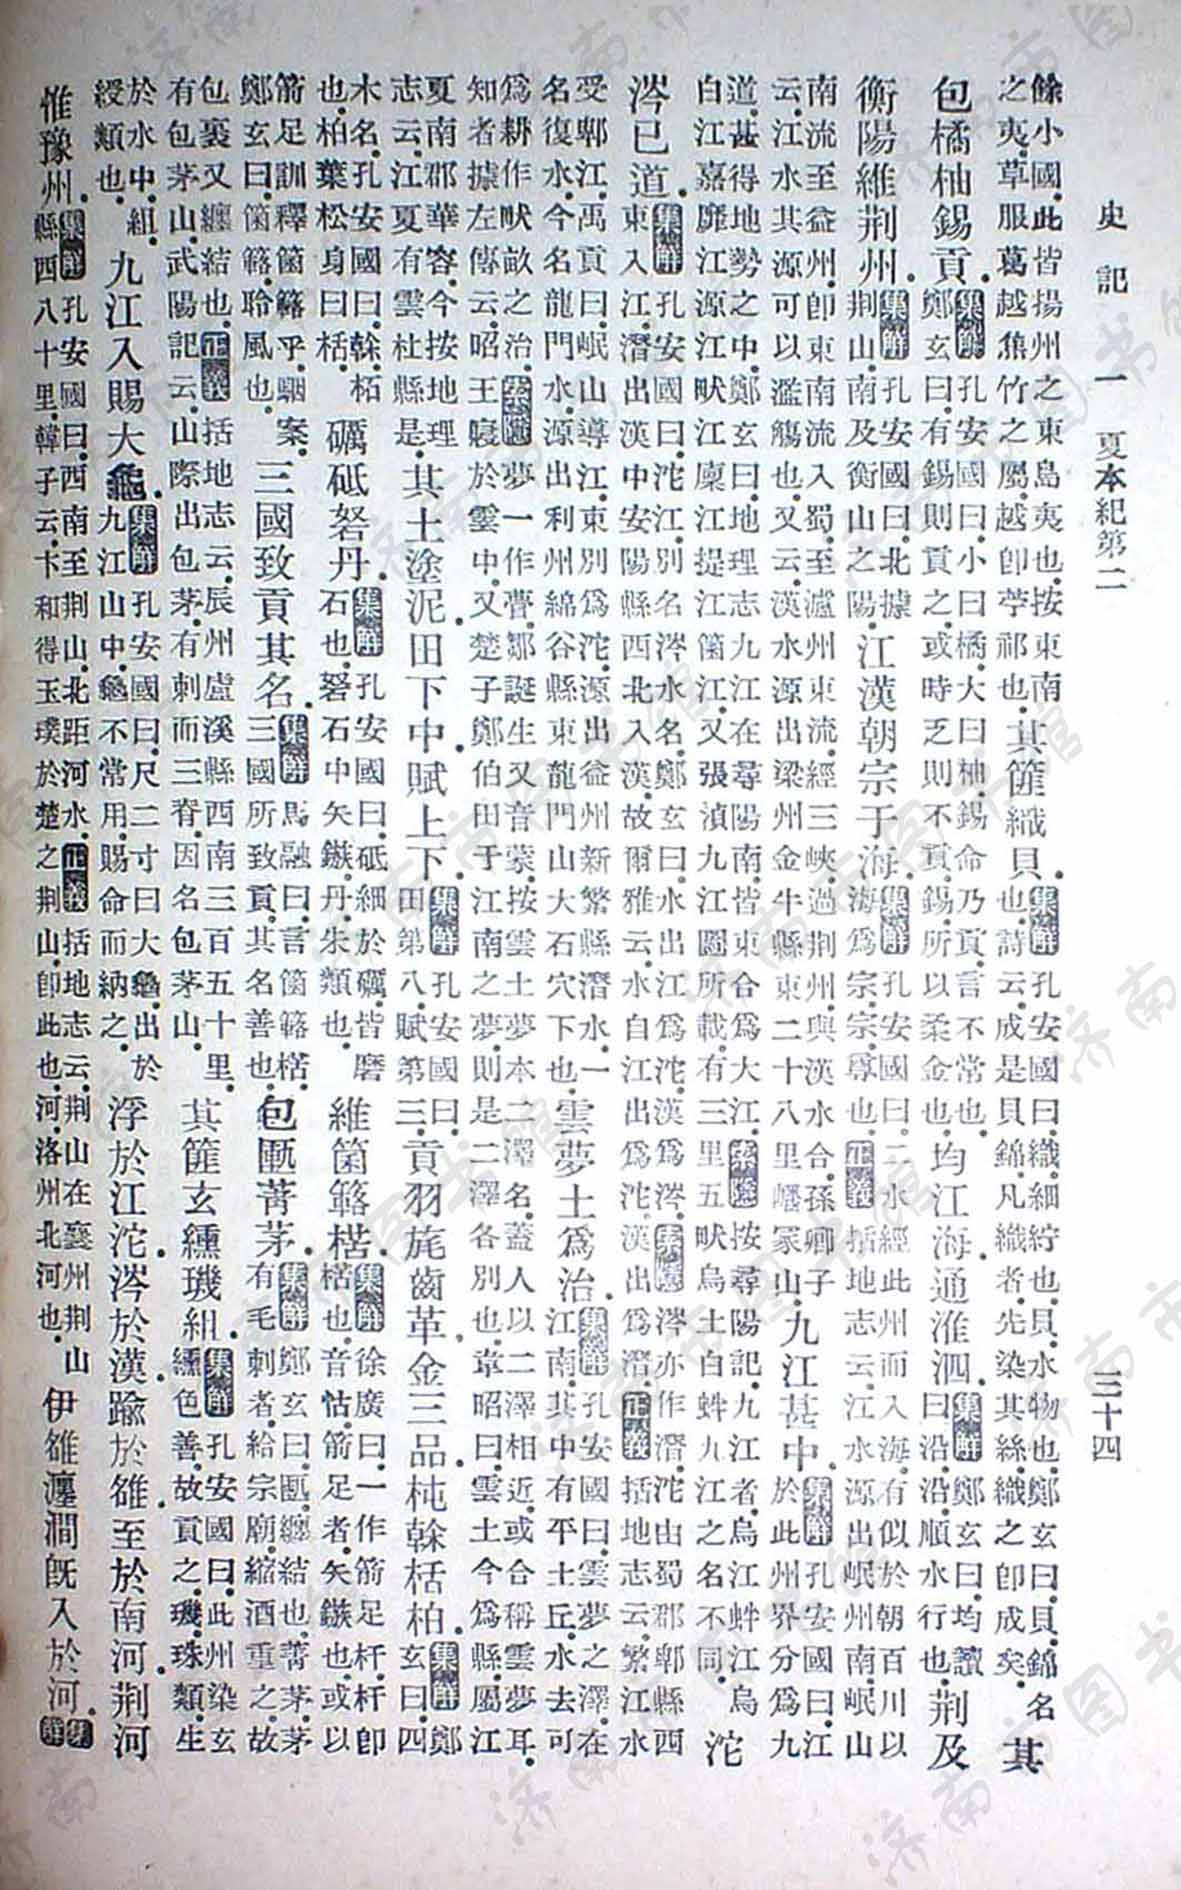 史記一 夏本紀第二 三十四
餘小國.此皆揚州之東島夷也.按東南之夷.草服葛越焦竹之屬.越卽苧祁也.其篚織貝.集解孔安國曰.織.細紵也.貝.水物也.鄭玄曰.貝.錦名也.詩云.成是貝錦.凡織者先染其絲.織之卽成矣.其
包橘柚錫貢.集解孔安國曰.小曰橘.大曰柚.錫命乃貢.言不常也.鄭玄曰.有錫則貢之.或時乏則不貢.錫所以柔金也.均江海.通淮泗.集解鄭玄曰.均.讀曰沿.沿.順水行也.荆及
衡陽維荆州.集解孔安國曰.北據荆山.南及衡山之陽.江漢朝宗于海.集解孔安國曰.二水經此州而入海.有似於朝.百川以海爲宗.宗.尊也.正義括地志云.江水源出岷州南岷山
南流至益州.卽東南流入蜀.至瀘州東流.經三峽.過荆州.與漢水合.孫卿子云.江水其源可以濫觴也.又云.漢水源出梁州金牛縣東二十八里嶓冢山.九江甚中.集解孔安國曰.江於此州界分爲九
道.甚得地勢之中.鄭玄曰.地理志九江在尋陽南.皆東合爲大江.索隱按尋陽記.九江者.烏江.蚌江.烏白江.嘉靡江.源江.畎江.廩江.提江.箘江.又張湞九江圖所載.有三里五畎烏土白蚌.九江之名不同.沱
涔已道.集解孔安國曰.沱.江別名.涔.水名.鄭玄曰.水出江爲沱.漢爲涔.索隱涔亦作潛.沱由蜀郡郫縣西東入江.潛出漢中安陽縣西北入漢.故爾雅云.水自江出爲沱.漢出爲潛.正義括地志云.繁江水
受郫江.禹貢曰.岷山導江.東別爲沱.源出益州新繁縣.潛水一名復水.今名龍門水.源出利州綿谷縣東龍門山大石穴下也.雲夢土爲治.集解孔安國曰.雲夢之澤.在江南.其中有平土丘.水去可
爲耕作畎畝之治.索隱夢.一作瞢.鄒誕生又音蒙.按雲土夢.本二澤名.蓋人以二澤相近.或合稱雲夢耳.知者.據左傳云.昭王寢於雲中.又楚子鄭伯田于江南之夢.則是二澤各別也.韋昭曰.雲土.今爲縣.屬江
夏南郡華容.今按地理志云.江夏有雲杜縣.是.其土塗泥.田下中.賦上下.集解孔安國曰.田第八.賦第三.貢羽旄齒革.金三品.杶榦栝柏.集解鄭玄曰.四
木名.孔安國曰.榦.柘也.柏葉松身曰栝.礪砥砮丹.集解孔安國曰.砥細於礪.皆磨石也.砮.石中矢鏃.丹.朱類也.維箘簬楛.集解徐廣曰.一作箭足杆.杆卽楛也.音怙.箭足者.矢鏃也.或以
箭足訓釋箘簬乎.駰案.鄭玄曰.箘簬.聆風也.三國致貢其名.集解馬融曰.言箘簬楛.三國所致貢.其名善也.包匭菁茅.集解鄭玄曰.匭.纏結也.菁茅.茅有毛刺者.給宗廟縮酒.重之.故
包裹又纏結也.正義括地志云.辰州盧溪縣西南三百五十里.有包茅山.武陽記云.山際出包茅.有刺而三脊.因名包茅山.其篚玄纁璣組.集解孔安國曰.此州染玄纁色善.故貢之.璣.珠類.生
於水中.組.綬類也.九江入賜大龜.集解孔安國曰.尺二寸曰大龜.出於九江山中.龜不常用.賜命而納之.浮於江沱涔於漢.踰於雒.至於南河.荆河
惟豫州.集解孔安國曰.西南至荆山.北距河水.正義括地志云.荆山在襄州荆山縣四八十里.韓子云.卞和得玉璞於楚之荆山.卽此也.河.洛州北河也.伊雒瀍澗旣入於河.集解